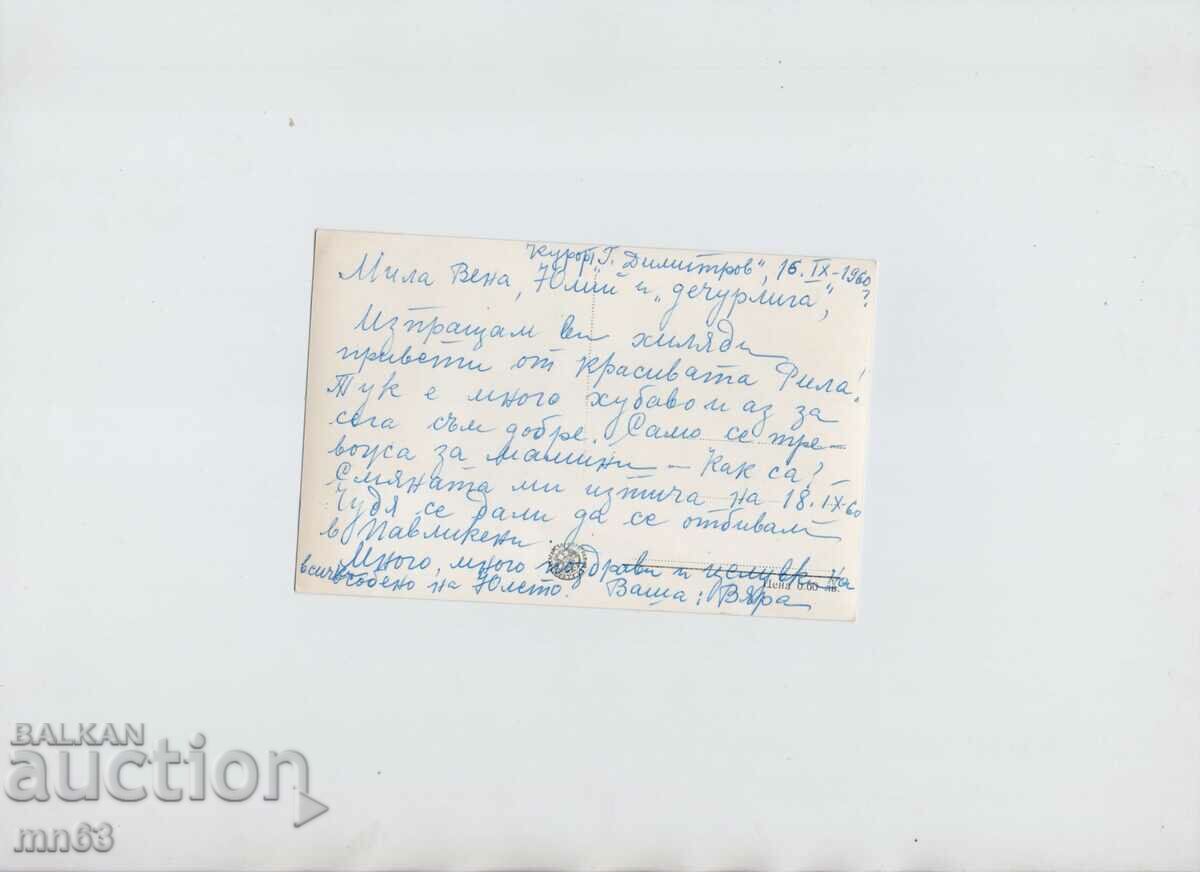 курорт „Г. Димитров", 16. IX-1960
Мила Вена, Юлий и „дечурлига", ?
Изпращам ви хиляди
привети от красивата Рила!
Тук е много хубаво и аз за
сега съм добре. Само се тре-
вожа за мамини – Как са?
Смяната ми изтича на 18. IX-60
Чудя се дали да се отбивам
в Павликени.
Много, много поздрави и целувки на
всички
особено на Юлето. Ваша: Вяра
Цена 0.60 лв.
BALKAN
auction
mn63